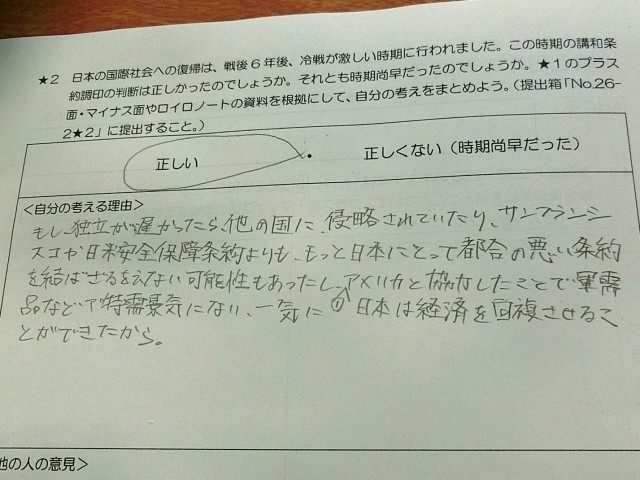 ★2 日本の国際社会への復帰は、戦後6年後、冷戦が激しい時期に行われました。この時期の講和条
約調印の判断は正しかったのでしょうか。それとも時期尚早だったのでしょうか。★1のプラス
面・マイナス面やロイロノートの資料を根拠にして、自分の考えをまとめよう。(提出箱「No.26-
2★2」に提出すること。)
正しい ・ 正しくない(時期尚早だった)
<自分の考える理由>
もし、独立が遅かったら、他の国に、侵略されていたり、サンフランシ
スコや日米安全保障条約よりも、もっと日本にとって都合の悪い条約
を結ばざるをえない可能性もあったし、アメリカと協力したことで軍需
品などで特需景気になり、一気に①日本は経済を回復させるこ
とができたから。
他の人の意見>